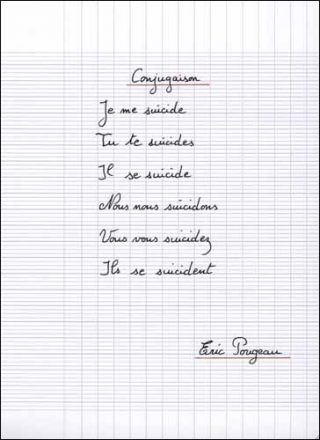 Conjugaison
Je me suicide
Tu te suicides
Il se suicide
Nous nous suicidons
Vous vous suicidez
Ils se suicident
Eric Pougeau